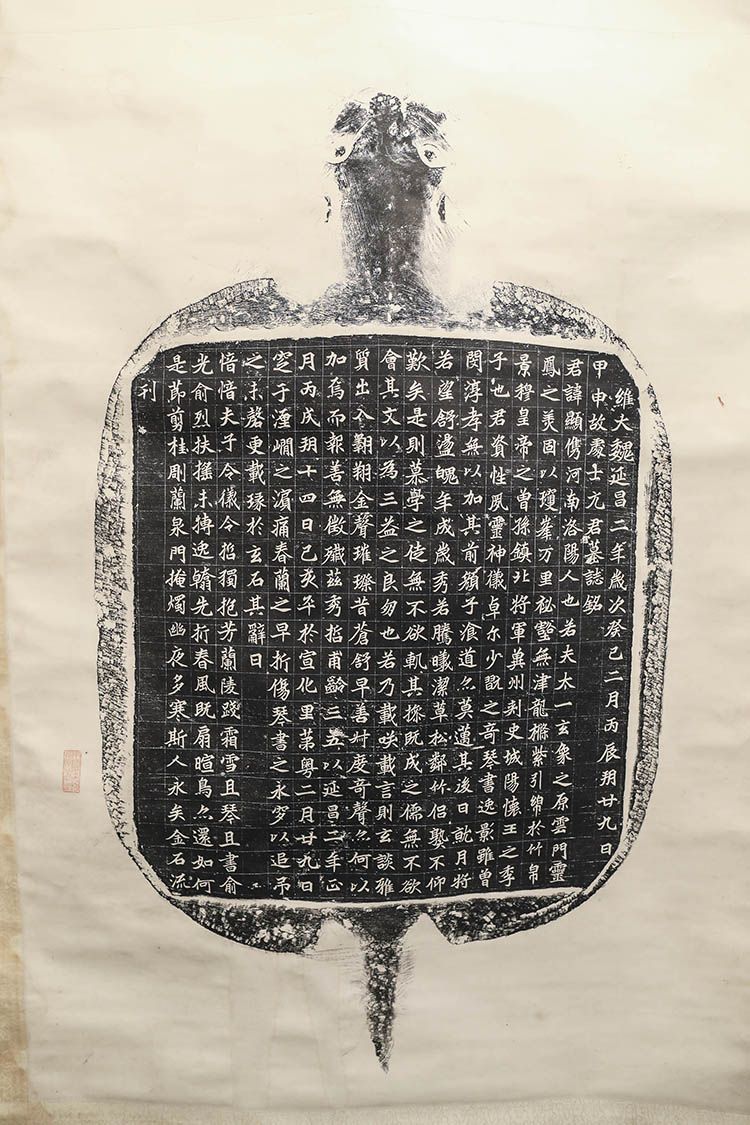 維大魏延昌二年歲次癸巳二月丙辰朔廿九日
甲申故處士元君墓誌銘
君諱顯儁河南洛陽人也若夫太一玄象之原雲門靈
鳳之美固以瓊峯万里秘壑無津龍樠紫引綿於竹帛
景穆皇帝之曾孫鎮北將軍冀州刺史城陽懷王之季
子也君資性夙靈神儀卓尔少翫之奇琴書逸影雖曾
閔淳孝無以加其前顏子湌道亦莫邁其後日就月將
若望舒盪魄年成歲秀若騰曦潔草松鄰竹侶娶不仰
歎矣是則慕學之徒無不欲軌其操既成之儒無不欲
會其文以為三益之良朋也若乃載咲載言則玄談雅
質出入翱翔金聲璀璨昔蒼舒早善尌度奇聲亦何以
加焉而報善無徵殲茲秀哲甫齡三五以延昌二年正
月丙戌朔十四日己亥卒於宣化里第粤二月廿九日
窆于瀍澗之濱痛春蘭之早折傷琴書之永穸以追弔
之未罄更載琢於玄石其辭曰
愔愔夫子令儀令哲獨抱芳蘭陵踐霜雪且琴且書俞
光俞烈扶搖未摶逸翮先折春風既扇暄鳥亦還如何
是節剪桂彫蘭泉門掩燭幽夜多寒斯人永矣金石流
刊